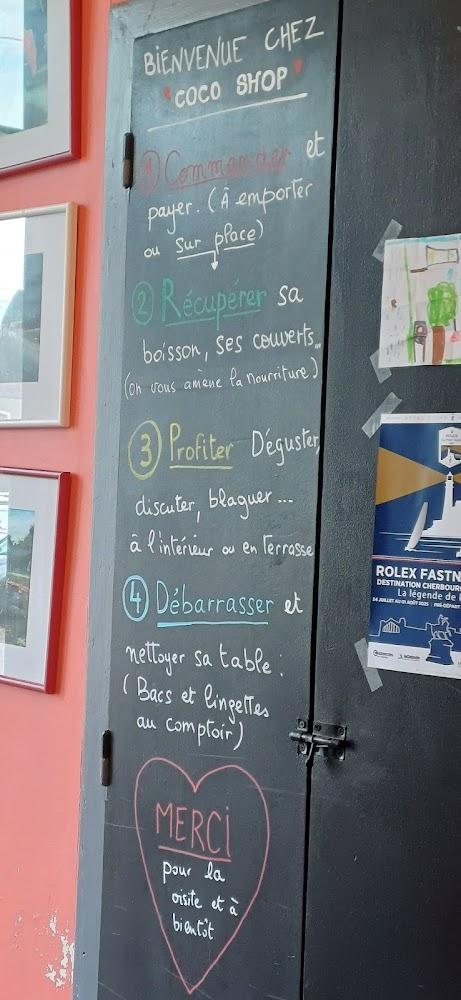 BIENVENUE CHEZ
"COCO SHOP"
① Commander et
payer. (À emporter
ou sur place)
② Récupérer sa
boisson, ses couverts...
(On vous amène la nourriture)
③ Profiter Déguster,
discuter, blaguer ...
à l'intérieur ou en Terrasse
④ Débarrasser et
nettoyer sa table :
(Bacs et lingettes
au comptoir)
MERCi
pour la
visite et à
bientôt
ROLEX FASTN
DESTINATION CHERBOUR
La légende de
24 JUILLET AU 01 AOÛT 2025